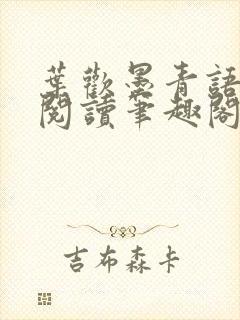 葉歡墨青語
閱讀筆趣閣
吉布森卡